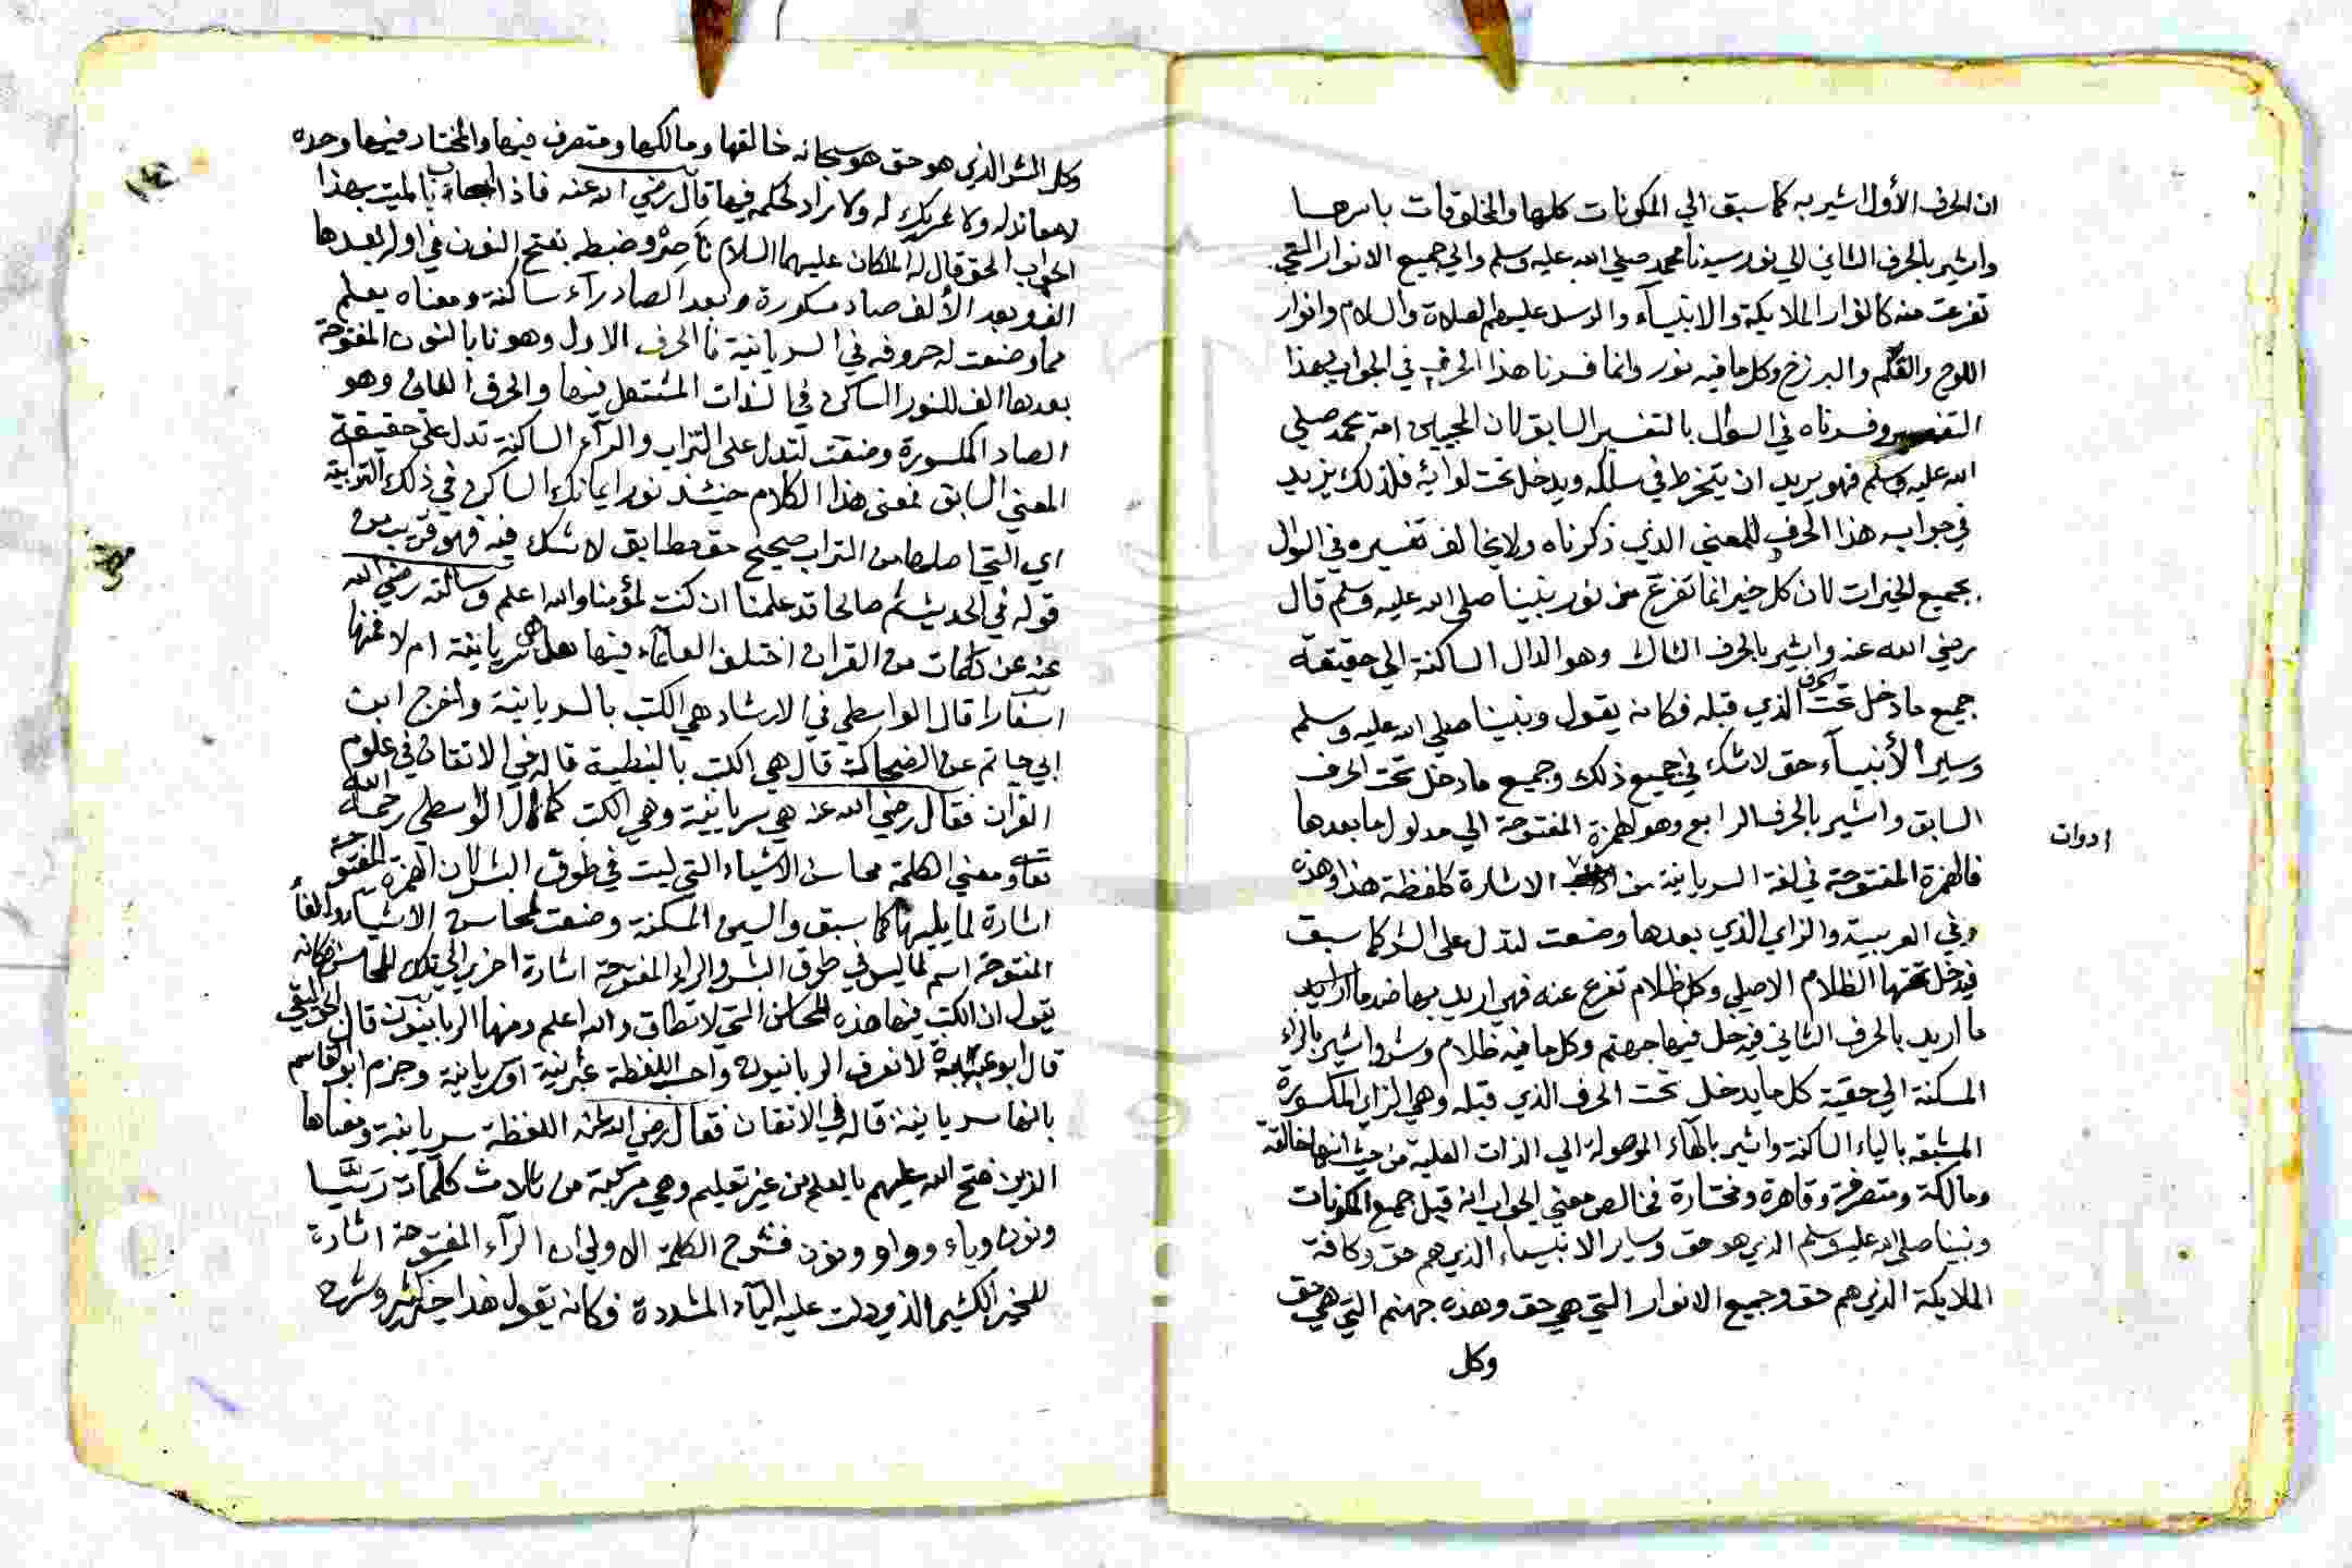 ان الحرف الأول اشير به كما سبق الي المكونات كلها والمخلوقات باسرها
واشير بالحرف الثاني الي نور سيدنا محمد صلي الله عليه وسلم والي جميع الانوار التي
تفرعت منه كانوار الملايكة والانبيآء والرسل عليهم الصلاة والسلام وانوار
اللوح والقلم والبرزخ وكل ما فيه نور وانما فسرنا هذا الحرف في الجواب بهذا
التفسير وفسرناه في السؤال بالتفسير السابق لان المجيب من امة محمد صلي
الله عليه وسلم فهو يريد ان يتخرط في سلكه ويدخل تحت لوائه فلذلك يزيد
في جوابه هذا الحرف للمعني الذي ذكرناه ولا يخالف تفسيره في السوال
بجميع الخيرات لان كل خير انما تفرع من نور نبينا صلي الله عليه وسلم قال
رضي الله عنه واشير بالحرف الثالث وهو الدال الساكنة الي حقيقة
جميع ما دخل تحت الحرف الذي قبله فكانه يقول ونبينا صلي الله عليه وسلم
وساير الأنبيآء حق لاشك في جميع ذلك وجميع ما دخل تحت الحرف
السابق واشير بالحرف الرابع وهو الهمزة المفتوحة الي مدلول ما بعدها
فالهمزة المفتوحة في لغة السريانية من الاشارة كلفظة هذا وهذه
ادوات
وفي العربية والزاي الذي بعدها وضعت لتدل على الشر كما سبق
فيدخل تحتها الظلام الاصلي وكل ظلام تفرع عنه فهي اريد بها ضد ما اريد
ما اريد بالحرف الثاني فيدخل فيها جهنم وكل ما فيه ظلام وشر واشير بالراء
المسكنة الي حقيقة كل ما يدخل تحت الحرف الذي قبله وهي الزاي المكسورة
المشبقه بالياء الساكنة واشير بالهاء الموصولة الي الذات العلية من حيث انها خالقة
ومالكة ومتصرفة وقاهرة ومختارة فخالص معني الجواب انه قيل جميع المكونات
ونبينا صلي الله عليه وسلم الذي هو حق وساير الانبياء الذي هم حق وكافة
الملايكة الذي هم حق وجميع الانوار التي هي حق وهذه جهنم التي هي حق
وكل
وكل الشر الذي هو حق هو سبحانه خالقها ومالكها ومتصرف فيها والمختار فيها وحده
لا معاند له ولا شريك له ولا راد لحكمه فيها قال رضي الله عنه فاذا اجاب الميت بهذا
الجواب الحق قال له الملكان عليهما السلام ناصر وضبطه بفتح النون في اوله بعدها
الف وبعد الألف صاد مكسورة وبعد الصاد رآء ساكنة ومعناه يعلم
مما وضعت له حروفه في السريانية فالحرف الاول وهو نا بالنون المفتوحة
بعدها الف للنور الساكن في الذات المشتعل فيها والحرف الثاني وهو
الصاد المكسورة وضعت لتدل على التراب والرآء الساكنة تدل على حقيقة
المعني السابق فمعنى هذا الكلام حينئذ نور ايمانك الساكن في ذلك التربية
اي التي اصلها من التراب صحيح حق مطابق لا شك فيه فهو قريب من
قوله في الحديث نم صالحا قد علمنا ان كنت لمؤمنا والله اعلم وسالته رضي الله
عنه عن كلمات من القران اختلف العلمآء فيها هل هي سريانية ام لا فمنها
اسفارا قال الواسطي في الارشاد هي الكتب بالسريانية واخرج ابن
ابي حاتم عن الضحاك قال هي الكتب بالنبطية قاله في الاتقان في علوم
القرآن فقال رضي الله عنه هي سريانية وهي الكتب كما قال الواسطي رحمه الله
تعا ومعني الكلمة محاسن الاشياء التي ليست في طوق البشر لان الهمزة المفتوحة
اشارة لما يليها كما سبق والسين المسكنة وضعت لمحاسن الاشياء والفا
المفتوحة اسم لما ليس في طوق البشر والراء المفتوحة اشارة اخري الي تلك المحاسن فكانه
يقول ان الكتب فيها هذه المحاسن التي لا تطاق والله اعلم ومنها الربانيون قال الجواليقي
قال ابو عبيدة لا نعرف الربانيون واحسب اللفظة عبرنية او سريانية وجزم ابو القاسم
بانها سريانية قاله في الاتقان فقال رضي الله عنه اللفظة سريانية ومعناها
الذين فتح الله عليهم بالعلم من غير تعليم وهي مركبة من ثلاث كلمات رَبَّـا
ونون وياء وواو ونون فشرح الكلمة الاولي ان الرآء المفتوحة اشارة
للخير الكثير الذي دلت عليه اليآء المشددة فكانه يقول هذا خير كثير وشرح